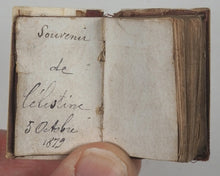 Souvenir
de
Célestine
5 Octobre
1879